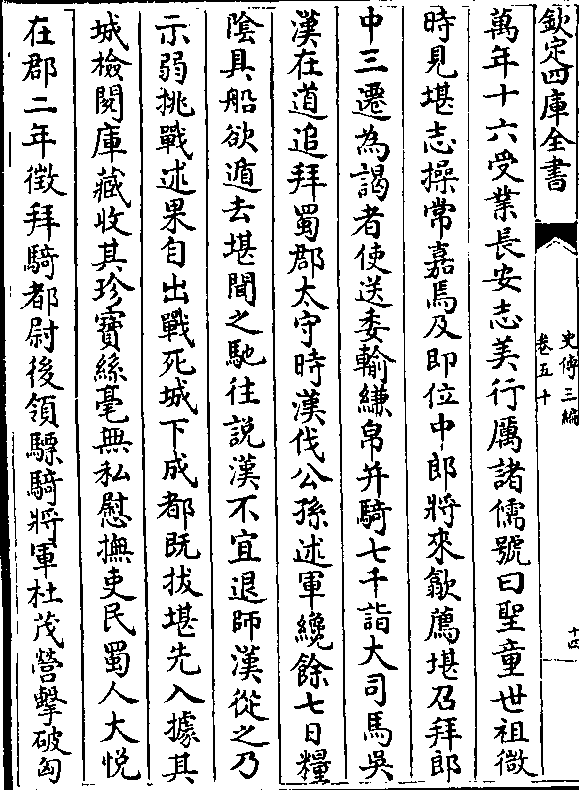 欽定四庫全書
史傳三編
卷五十
十四
萬年十六受業長安志美行厲諸儒號曰聖童世祖微
時見堪志操常嘉焉及即位中郎將來歙薦堪召拜郎
中三遷為謁者使送委輸縑帛并騎七千詣大司馬吳
漢在道追拜蜀郡太守時漢伐公孫述軍纔餘七日糧
陰具船欲遁去堪聞之馳往說漢不宜退師漢從之乃
示弱挑戰述果自出戰死城下成都既拔堪先入據其
城檢閱庫藏收其珍寶絲毫無私慰撫吏民蜀人大悅
在郡二年徵拜騎都尉後領驃騎將軍杜茂營擊破匈